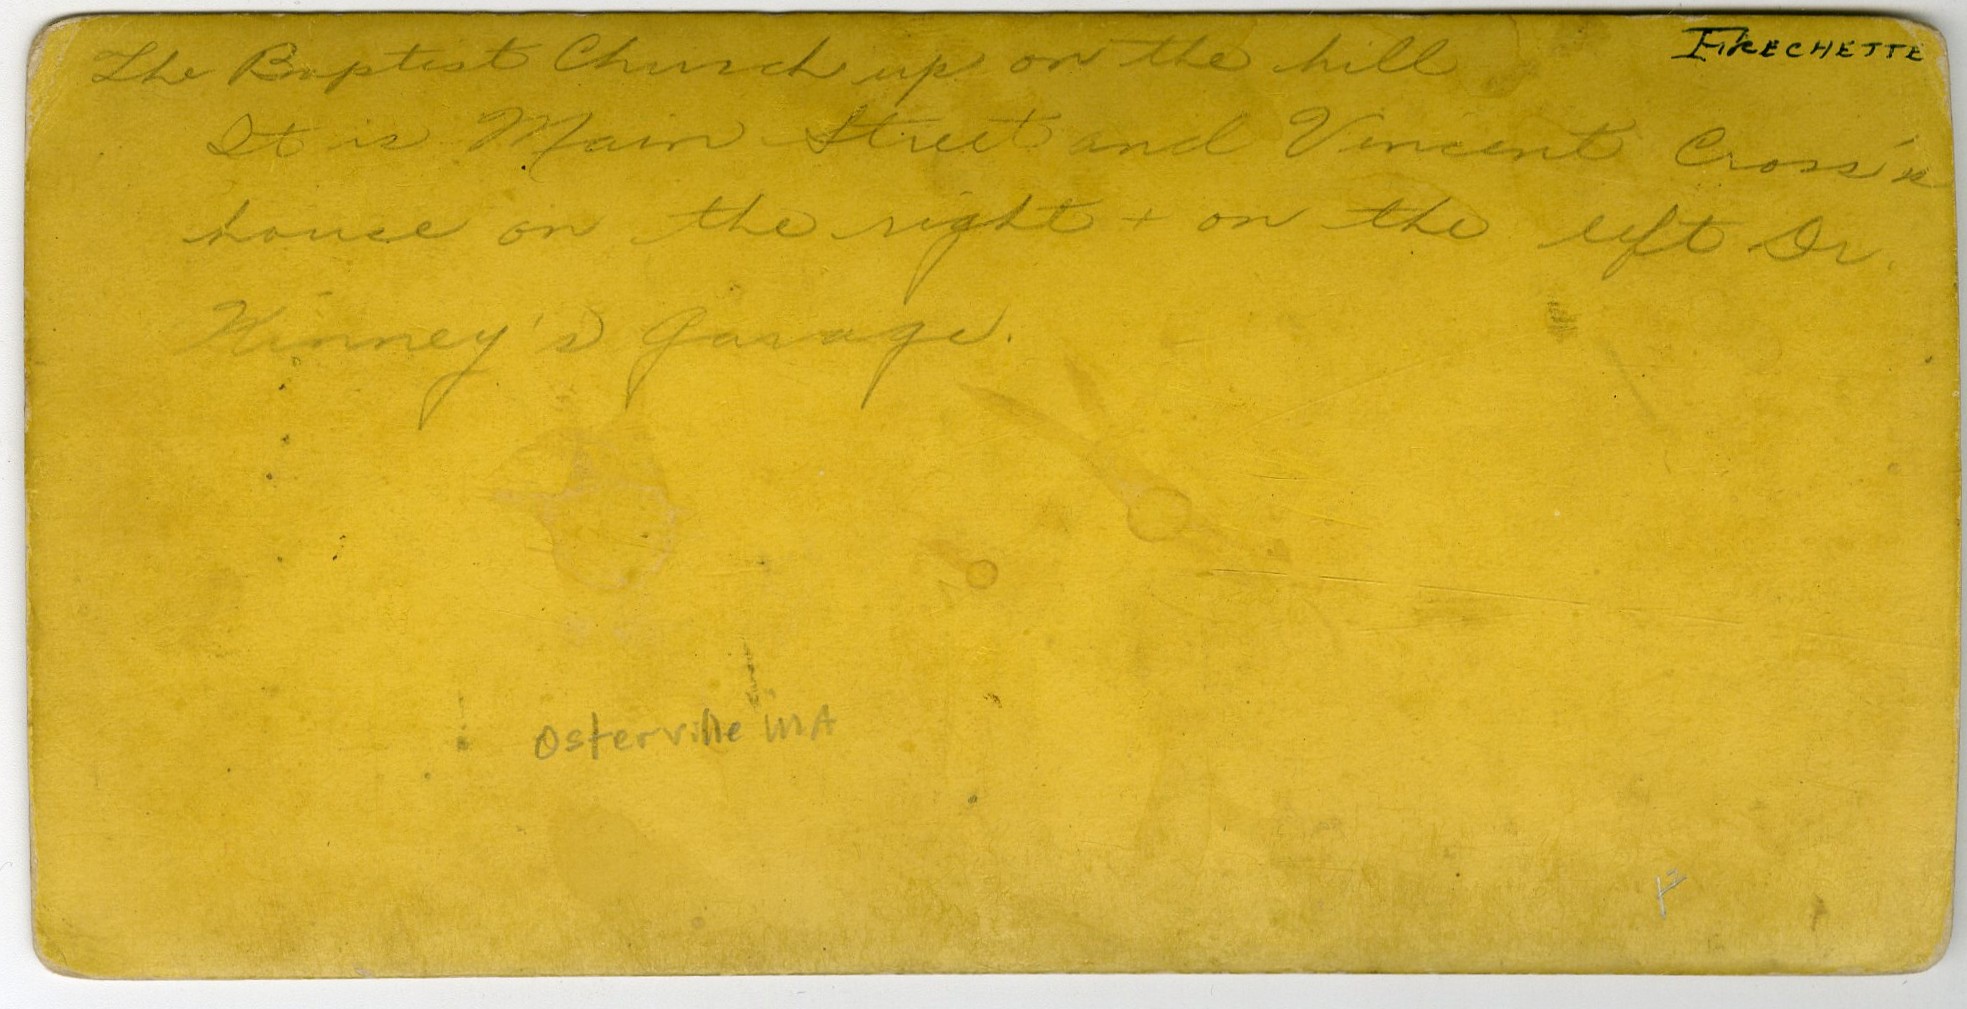 The Baptist Church up on the hill
FRECHETTE
It is Main Street and Vincent Cross's
house on the right + on the left Dr.
Kinney's Garage.
Osterville MA